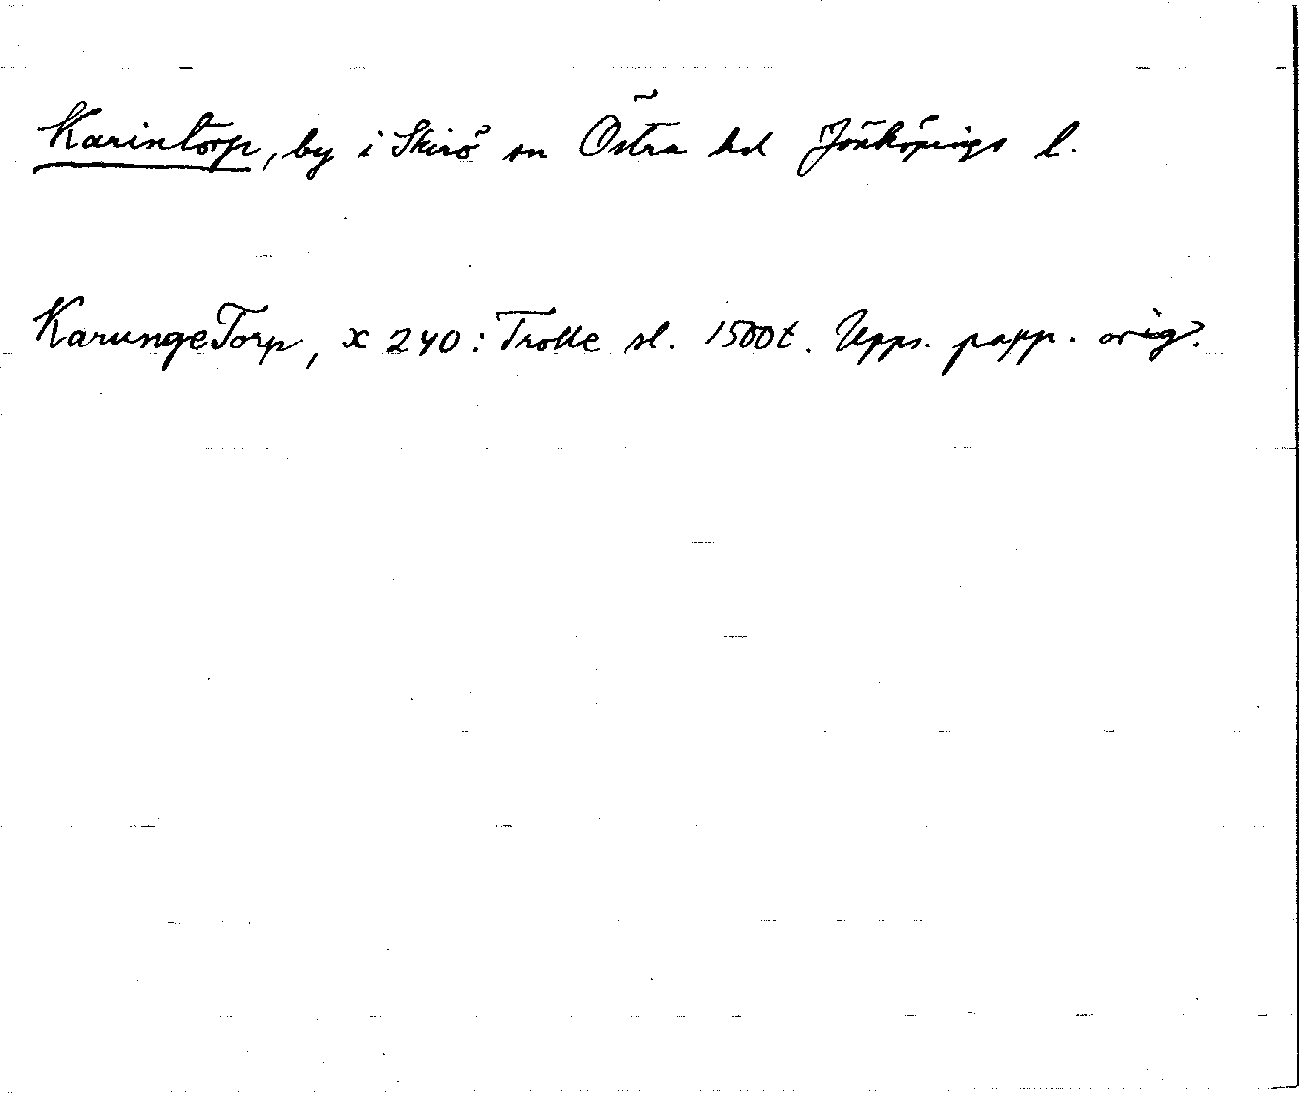 Karintorp, by i Skirö sn Östra hd Jönköpings l.
KarungeTorp, x 240: Trolle sl. 1500t. Upps. papp. orig.